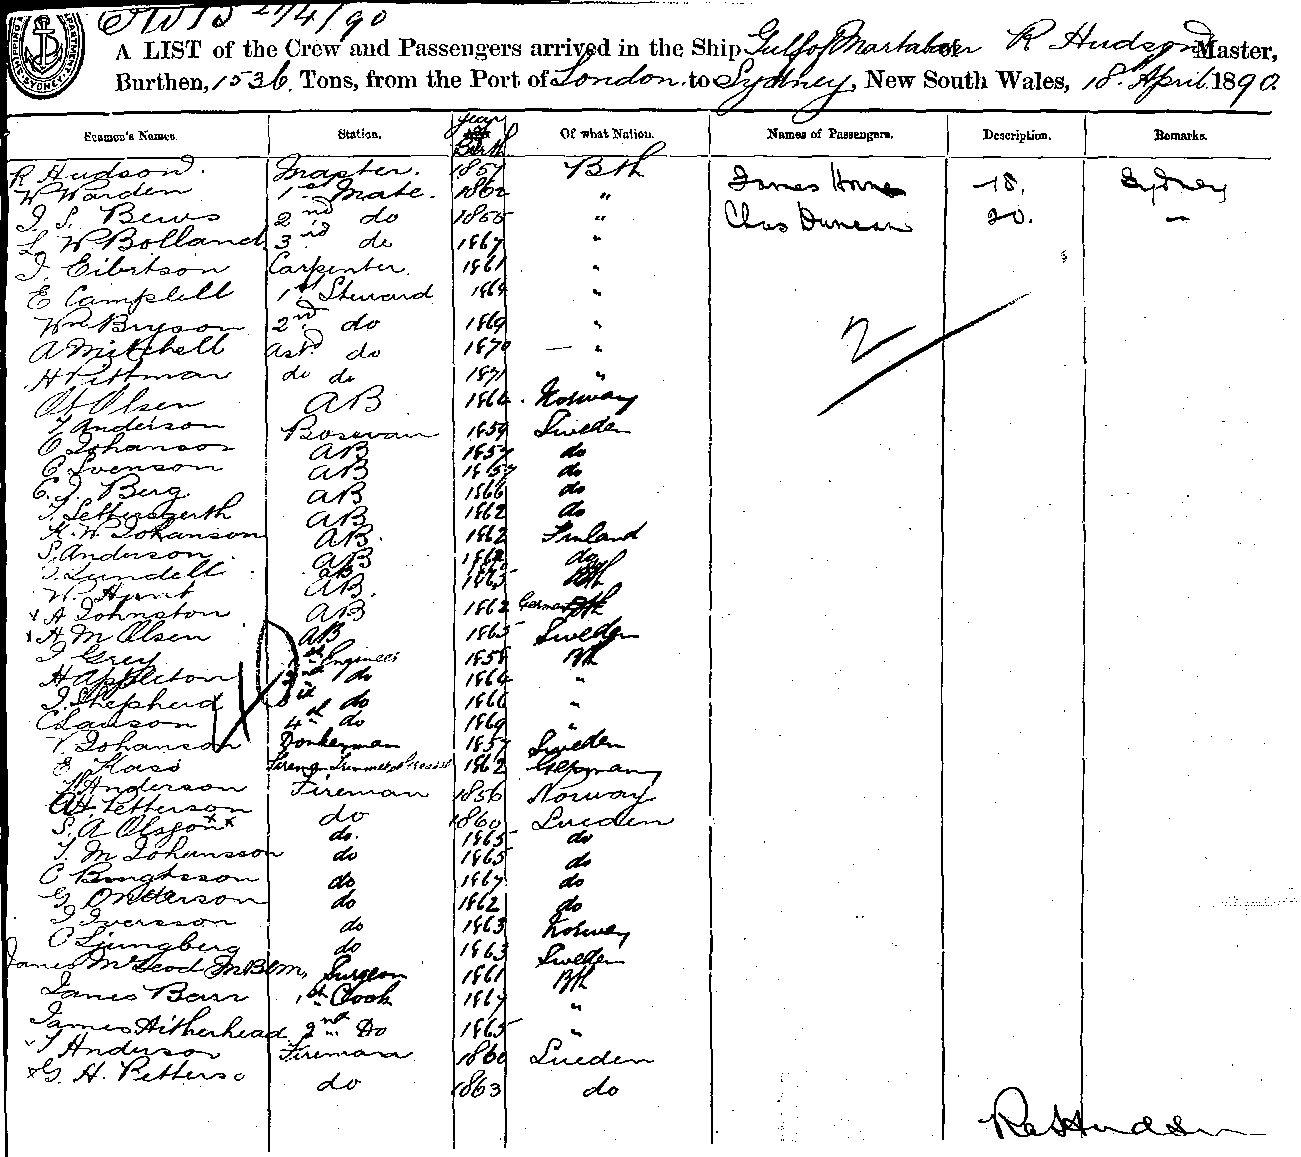 21/4/90
A LIST of the Crew and Passengers arrived in the Ship Gulf of Martaban R Hudson Master,
Burthen, 1536 Tons, from the Port of London to Sydney, New South Wales, 18 April 1890.
Seamen's Names. Station. Year Birth Of what Nation. Names of Passengers. Description. Remarks.
R Hudson. Master. 1857 Bth
W Warden 1st Mate. 1862 " James Horne 18. Sydney
J. S. Bews 2nd do 1865 " Chas Duncan 20. "
L W Bolland 3rd do 1867 "
J. Eibertson Carpenter. 1861 "
E Campbell 1st Steward 1864 "
Wm Bryson 2nd do 1869 " 2
A Mitchell Asst do 1870 "
H Pittman do do 1871 "
Olsen AB 1864 Norway
T Anderson Bosevan 1859 Sweden
O Johanson AB 1857 do
C Svenson AB 1857 do
C. J. Berg AB 1866 do
AB 1862 do
K. W. Johanson AB 1862 Finland
S. Anderson AB do
Lundell AB 1865 Bth
W. Hunt AB.
x A Johnston AB 1862 German
x H M Olsen AB 1865 Sweden
J Grey Engineer 1858 Bth
H Appleton 2nd do 1864 "
J. Shepherd 3rd do 1866 "
C Lawson 4th do 1869 "
V. Johanson Donkeyman 1857 Sweden
E Klass 1862 Germany
Anderson Fireman 1856 Norway
A. Petterson do 1860 Sweden
S. A. Olsson xx do. 1865 do
T. M Johansson do 1865 do
C Bengtsson do 1867 do
G Anderson do 1862 do
J Iversson do 1863 Norway
C Ljungberg do 1863 Sweden
James McLeod M B C M, Surgeon 1861 Bth
James Barr 1st Cook 1867 "
James Aitherhead 2nd Do 1865 "
x T Anderson Fireman 1860 Sweden
x G. H. Petterso do 1863 do
R Hudson